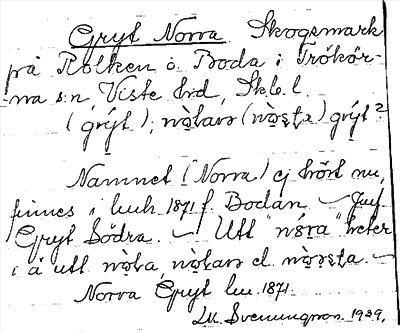 Gryt Norra Skogsmark
på Rolken ö. Boda i Trökör-
na sn, Viste hd, Skb. l.
(grýt); nò̱lavə (nò̱sta) grýt²
Namnet (Norra) ej hört nu,
finnes i luh 1871 f. Bodan. – Jmf
Gryt Södra. – Utt "nó̱ra" heter
i a utt nò̱la, nò̱lavə el. nò̱rəsta. –
Norra Gryt lu. 1871.
LM. Svenungsson. 1929.